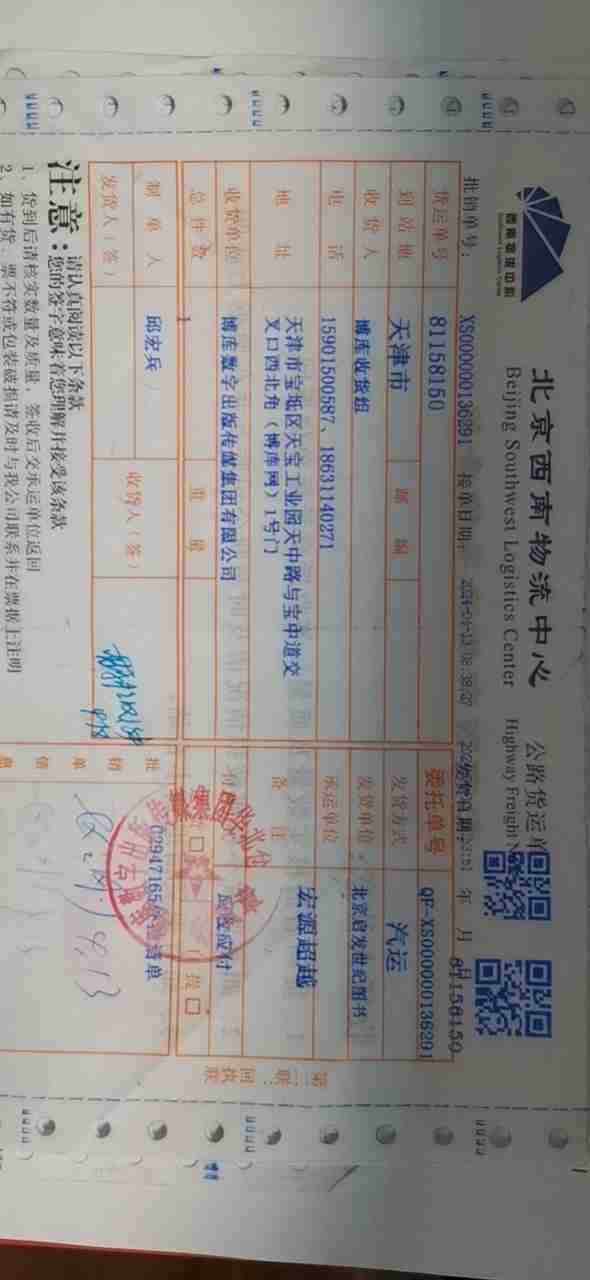 西南物流中心
Southwest Logistics Center
北京西南物流中心
Beijing Southwest Logistics Center
公路货运单
Highway Freight
批销单号: XS000000136291 接单日期:
年 月
81158150
货运单号 81158150 委托单号 QF-XS000000136291
到站地 天津市 邮编 发货方式 汽运
收货人 博库收货组 发货单位 北京启发世纪图书
电话 15901500587、18631140271 承运单位
地址 天津市宝坻区天宝工业园天中路与宝中道交
叉口西北角(博库网)1号门
备注 宏源超越
收货单位 博库数字出版传媒集团有限公司
应收应付
总件数 1 重量
提
制单人 邱宏兵
发货人(签) 收货人(签)
批销单
清单
4.13
第二联:回执联
注意:
请认真阅读以下条款
您的签字意味着您理解并接受该条款
1、货到后请核实数量及质量,签收后交承运单位返回
2、如有货、票不符或包装破损请及时与我公司联系并在票据上注明